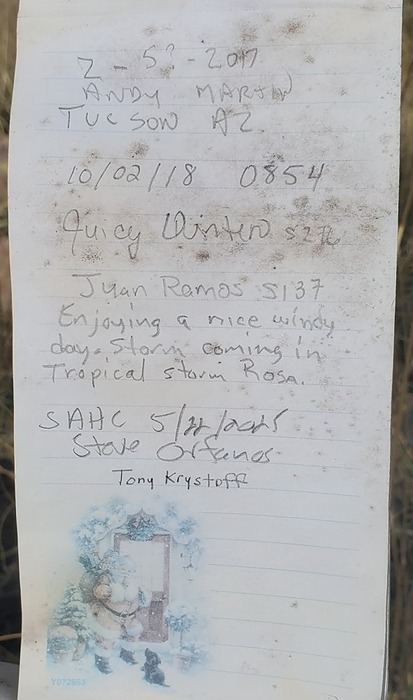 2-5?-2017
ANDY MARTIN
TUCSON AZ
10/02/18 0854
Juicy Winter S276
Juan Ramos S137
Enjoying a nice windy
day. Storm coming in
Tropical storm Rosa.
SAHC 5/22/2025
Steve Orfanos
Tony Krystoff
YD72663